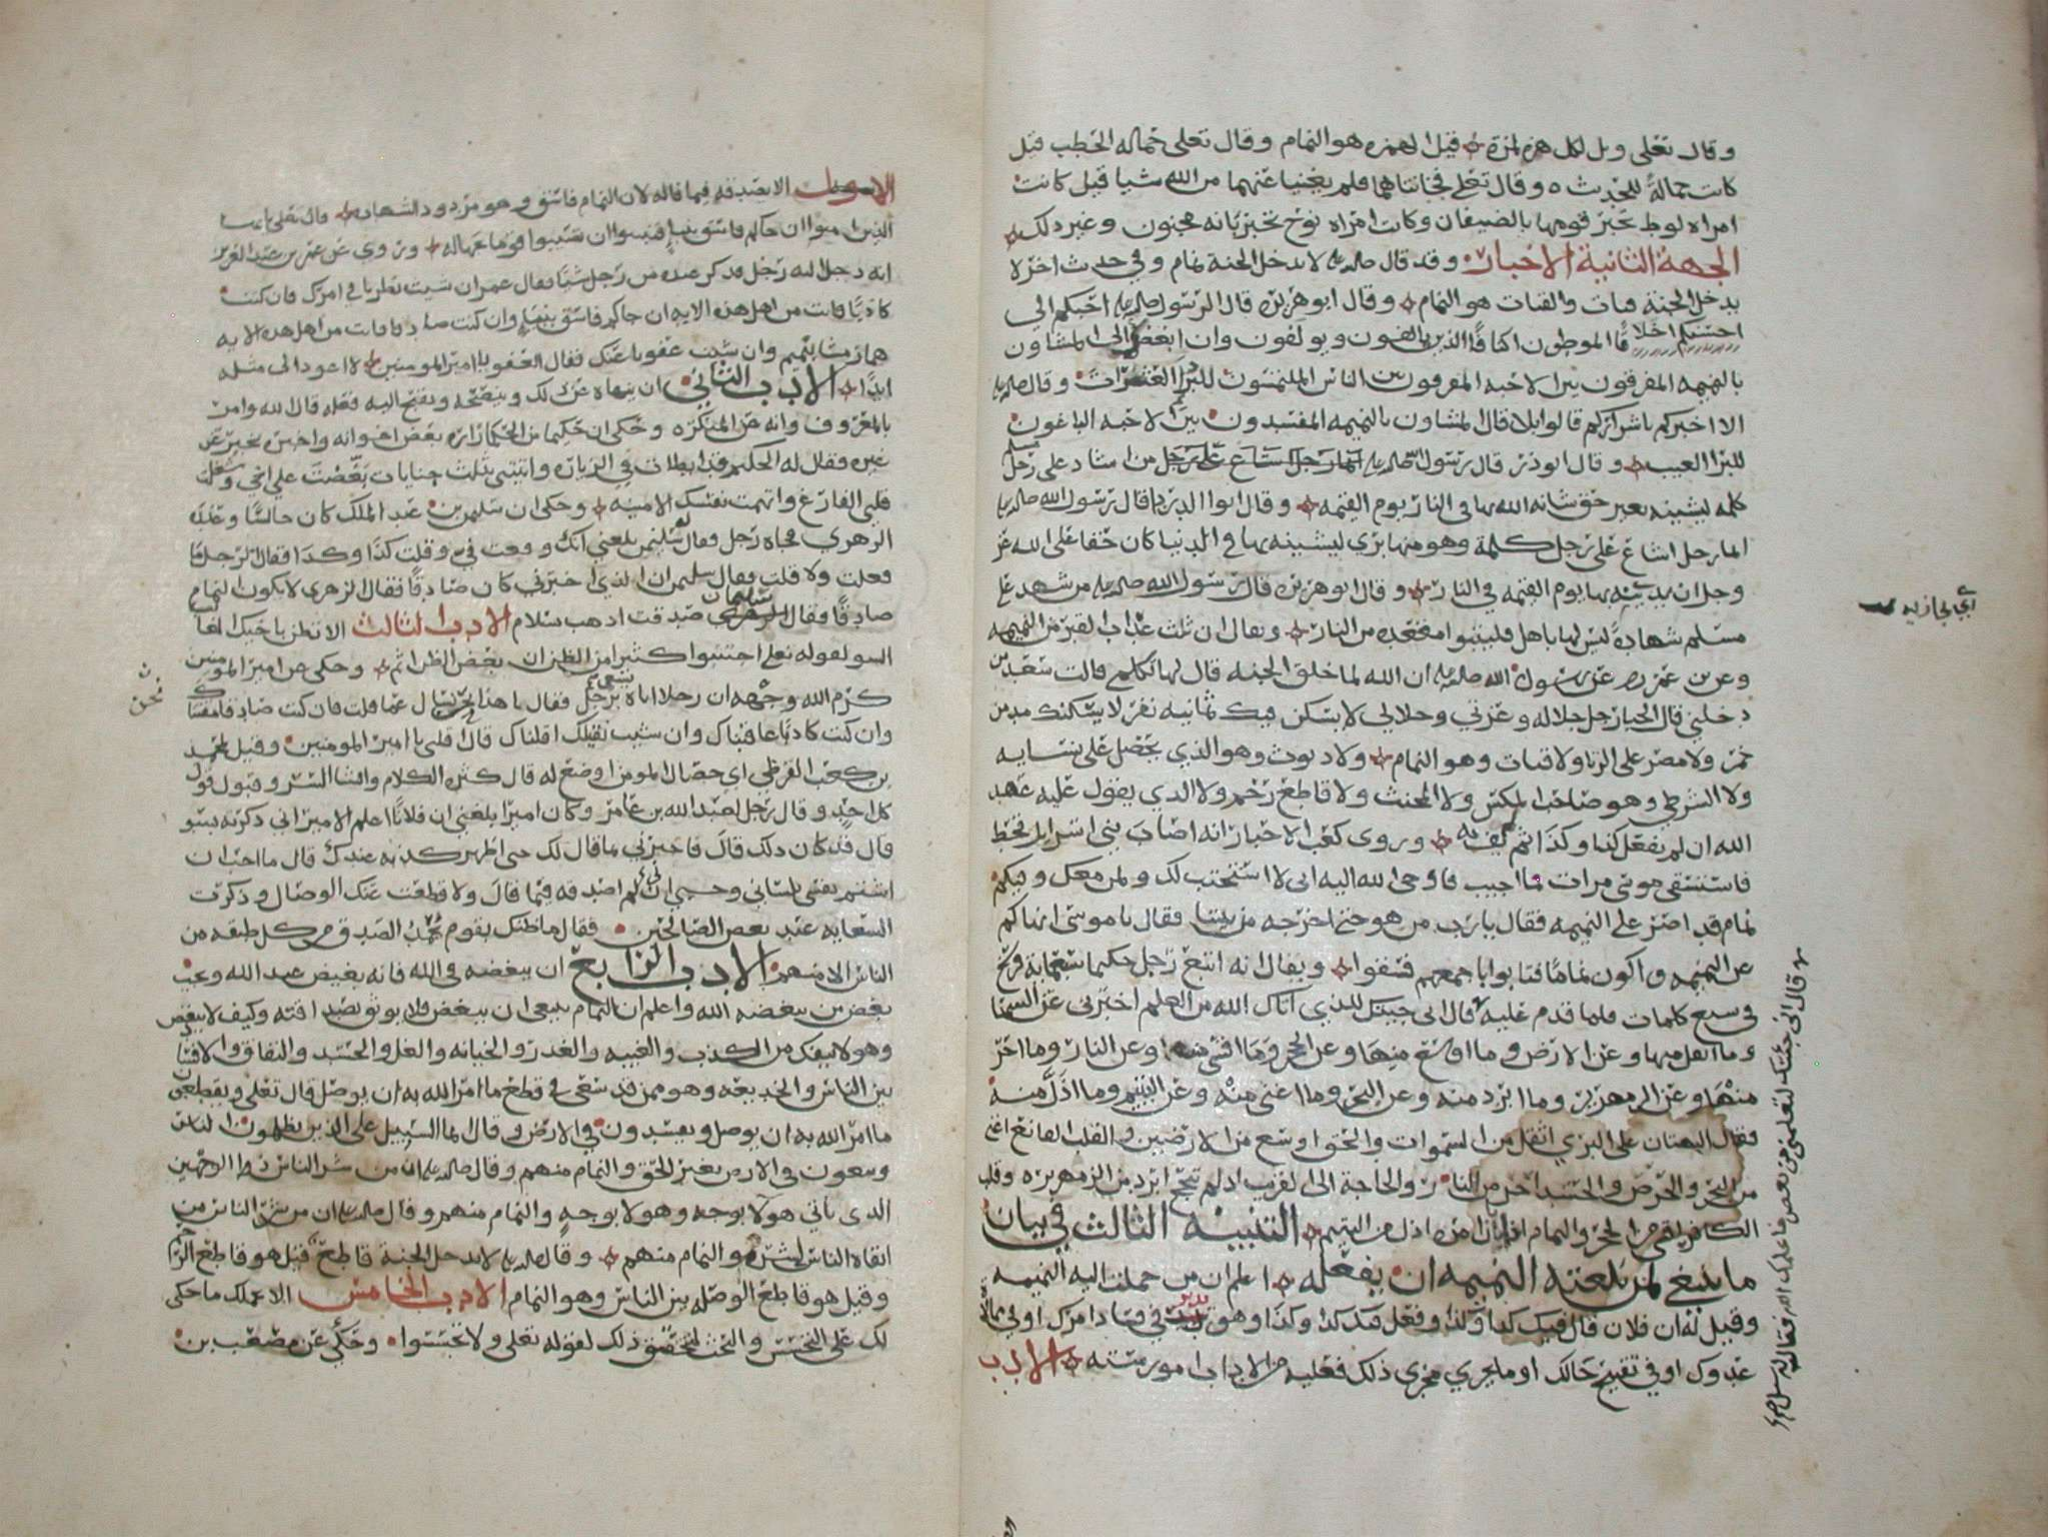 وقال تعلى ويل لكل همزه لمزة قيل الهمزه هو النمام وقال تعلى حماله الحطب قيل
كانت حمالةً للحديث وقال تعلى فخانتاهما فلم يغنيا عنهما من الله شيا قيل كانت
امراه لوط تخبر قومها بالضيفان وكانت امراه نوح تخبر بانه مجنون وغير ذلك
الجهة الثانية الاخبار وقد قال صلى الله عليه لا يدخل الجنة نمام وفي حديث اخر لا
يدخل الجنة قتات والقتات هو النمام وقال ابو هريره قال الرسول صلى الله عليه احبكم الي
احسنكم اخلاقًا الموطون اكنافًا الذين يالفون ويولفون وان ابغضكم الى المشاون
بالنميمه المفرقون بين الاحبه المفرقون بين الناس الملتمسون للبرا العثرات وقال صلى الله عليه
الا اخبركم بشراركم قالوا بلا قال المشاون بالنميمه المفسدون بين الاحبه الباغون
للبرا العيب وقال ابو ذر قال رسول الله صلى الله عليه من اشاد على رجل مسلم
كلمه ليشينه بغير حق شانه الله بها في النار يوم القيمه وقال ابو الدردا قال رسول الله صلى الله عليه
ايما رجل اشاع على رجل كلمة وهو منها بري ليشينه بها في الدنيا كان حقا على الله عز
وجل ان يدينه بها يوم القيمه في النار وقال ابو هريره قال رسول الله صلى الله عليه من شهد على
مسلم شهادةً ليس لها باهل فليتبوا مقعده من النار ويقال ان ثلث عذاب القبر من النميمه
وعن بن عمر عن رسول الله صلى الله عليه ان الله لما خلق الجنه قال لها تكلمي قالت سعد من
دخلني قال الجبار جل جلاله وعزتي وجلالي لا يسكن فيك ثمانيه نفر لا يسكنك مدمن
خمر ولا مصر على الزنا ولا قتات وهو النمام ولا ديوث وهو الذي على نسايه
ولا الشرطي وهو صاحب المكس ولا المخنث ولا قاطع رحم ولا الذي يقول عليه عهد
الله ان لم يفعل كذا وكذا ثم لم يف به وروى كعب الاحبار انه اصاب بني اسرايل قحط
فاستسقى موسى مرات فما اجيب فاوحى الله اليه اني لا استجيب لك ولمن معك وفيكم
نمام قد اصر على النميمه فقال يا رب من هو حتى اخرجه من بيننا فقال يا موسى انهاكم
عن النميمه واكون نمامًا فتابوا باجمعهم فسقوا ويقال انه اتبع رجل حكيما سبعمايه فرسخ
في سبع كلمات فلما قدم عليه قال اني جيتك للذي اتاك الله من العلم اخبرني عن السما
وما اثقل منها وعن الارض وما اوسع منها وعن الحجر وما اقسى منه وعن النار وما احر
منها وعن الزمهرير وما ابرد منه وعن البحر وما اغنى منه وعن اليتيم وما اذل منه
فقال البهتان على البري اثقل من السموات والحق اوسع من الارضين والقلب القانع اغنى
من البحر والحرص والحسد احر من النار والحاجة الى القريب اذا لم تنجح ابرد من الزمهرير وقلب
الكافر اقسى من الحجر والنمام اذا بان امره اذل من اليتيم التنبيه الثالث في بيان
ما ينبغي لمن بلغته النميمه ان يفعله اعلم ان من حملت اليه النميمه
وقيل له ان فلان قال فيك كذا وكذا وفعل فيك كذا وكذا وهو يدبر في فساد امرك او في ممالاة
عدوك او في تقبيح حالك او ما يجري مجرى ذلك فعليه من الاداب امور ستة الادب
اي لجازيه
قال اني جئتك لتعلمني من بعض ما علمك الله فقال له سل
الاول الا يصدقه فيما قاله لان النمام فاسق وهو مردود الشهاده قال تعلى يا ايها
الذين امنوا ان جاكم فاسق بنبا فتبينوا ان تصيبوا قوما بجهاله وروي عن عمر بن عبد العزيز
انه دخل اليه رجل فذكر عنده من رجل شيًا فقال عمر ان شيت نظرنا في امرك فان كنت
كاذبًا فانت من اهل هذه الايه ان جاكم فاسق بنباٍ وان كنت صادقا فانت من اهل هذه الايه
هماز مشا بنميم وان شيت عفونا عنك فقال العفو يا امير المومنين لا اعود الى مثله
ابدًا الادب الثاني ان ينهاه عن ذلك وينصحه ويقبح اليه فعله قال الله وامر
بالمعروف وانه عن المنكر وحكى ان حكيما من الحكما زاره بعض اخوانه واخبره بخبر عن
غيره فقال له الحكيم قد ابطات في الزياره واتيتني بثلث جنايات بغّضت علي اخي وشغلت
قلبي الفارغ واتهمت نفسك الامينه وحكى ان سليمن بن عبد الملك كان جالسًا وعنده
الزهري فجاه رجل فقال له سليمن بلغني انك وقعت في وقلت كذا وكذا فقال الرجل ما
فعلت ولا قلت فقال سليمان ان الذي اخبرني كان صادقًا فقال الزهري لا يكون النمام
صادقًا فقال سليمان صدقت اذهب بسلام الادب الثالث الا تظن باخيك الغايب
السو لقوله تعلى اجتنبوا كثيرا من الظن ان بعض الظن اثم وحكى عن امير المومنين
كرم الله وجهه ان رجلا اتاه يسعى برجل فقال يا هذا نحن نسال عما قلت فان كنت صادقا مقتناك
وان كنت كاذبًا عاقبناك وان شيت نقيلك اقلناك قال اقلني يا امير المومنين وقيل لمحمد
بن كعب القرظي اي خصال المومن اوضع له قال كثره الكلام وافشا السر وقبول قول
كل احدٍ وقال رجل لعبد الله بن عامر وكان اميرا بلغني ان فلانًا اعلم الامير اني ذكرته بسو
قال قد كان ذلك قال فاخبرني بما قال لك حتى اظهر كذبه عندك قال ما احب ان
اشتم نفسي بلساني وحسبي اني لم اصدقه فيما قال ولا قطعت عنك الوصال وذكرت
السعايه عند بعض الصالحين فقال ما ظنك بقوم يُحمد الصدق من كل طبقه من
الناس الا منهم الادب الرابع ان يبغضه في الله فانه بغيض عند الله ويجب
بغض من يبغضه الله واعلم ان النمام ينبغي ان يبغض فلا يوثق بصداقته وكيف لا يبغض
وهو لا ينفك من الكذب والغيبه والغدر والخيانه والغل والحسد والنفاق والافساد
بين الناس والخديعه وهو ممن قد سعى في قطع ما امر الله به ان يوصل قال تعلى ويقطعون
ما امر الله به ان يوصل ويفسدون في الارض وقال انما السبيل على الذين يظلمون الناس
ويبغون في الارض بغير الحق والنمام منهم وقال صلى الله عليه ان من شر الناس ذو الوجهين
الذي ياتي هولا بوجه وهولا بوجهٍ والنمام منهم وقال صلى الله عليه ان من شر الناس من
اتقاه الناس لشره والنمام منهم وقال صلى الله عليه لا يدخل الجنة قاطع قيل هو قاطع الرحم
وقيل هو قاطع الوصله بين الناس وهو النمام الادب الخامس الا يحملك ما حكى
لك على التجسس والبحث لتحقق ذلك لقوله تعلى ولا تجسسوا وحكي عن مصعب بن
نحن